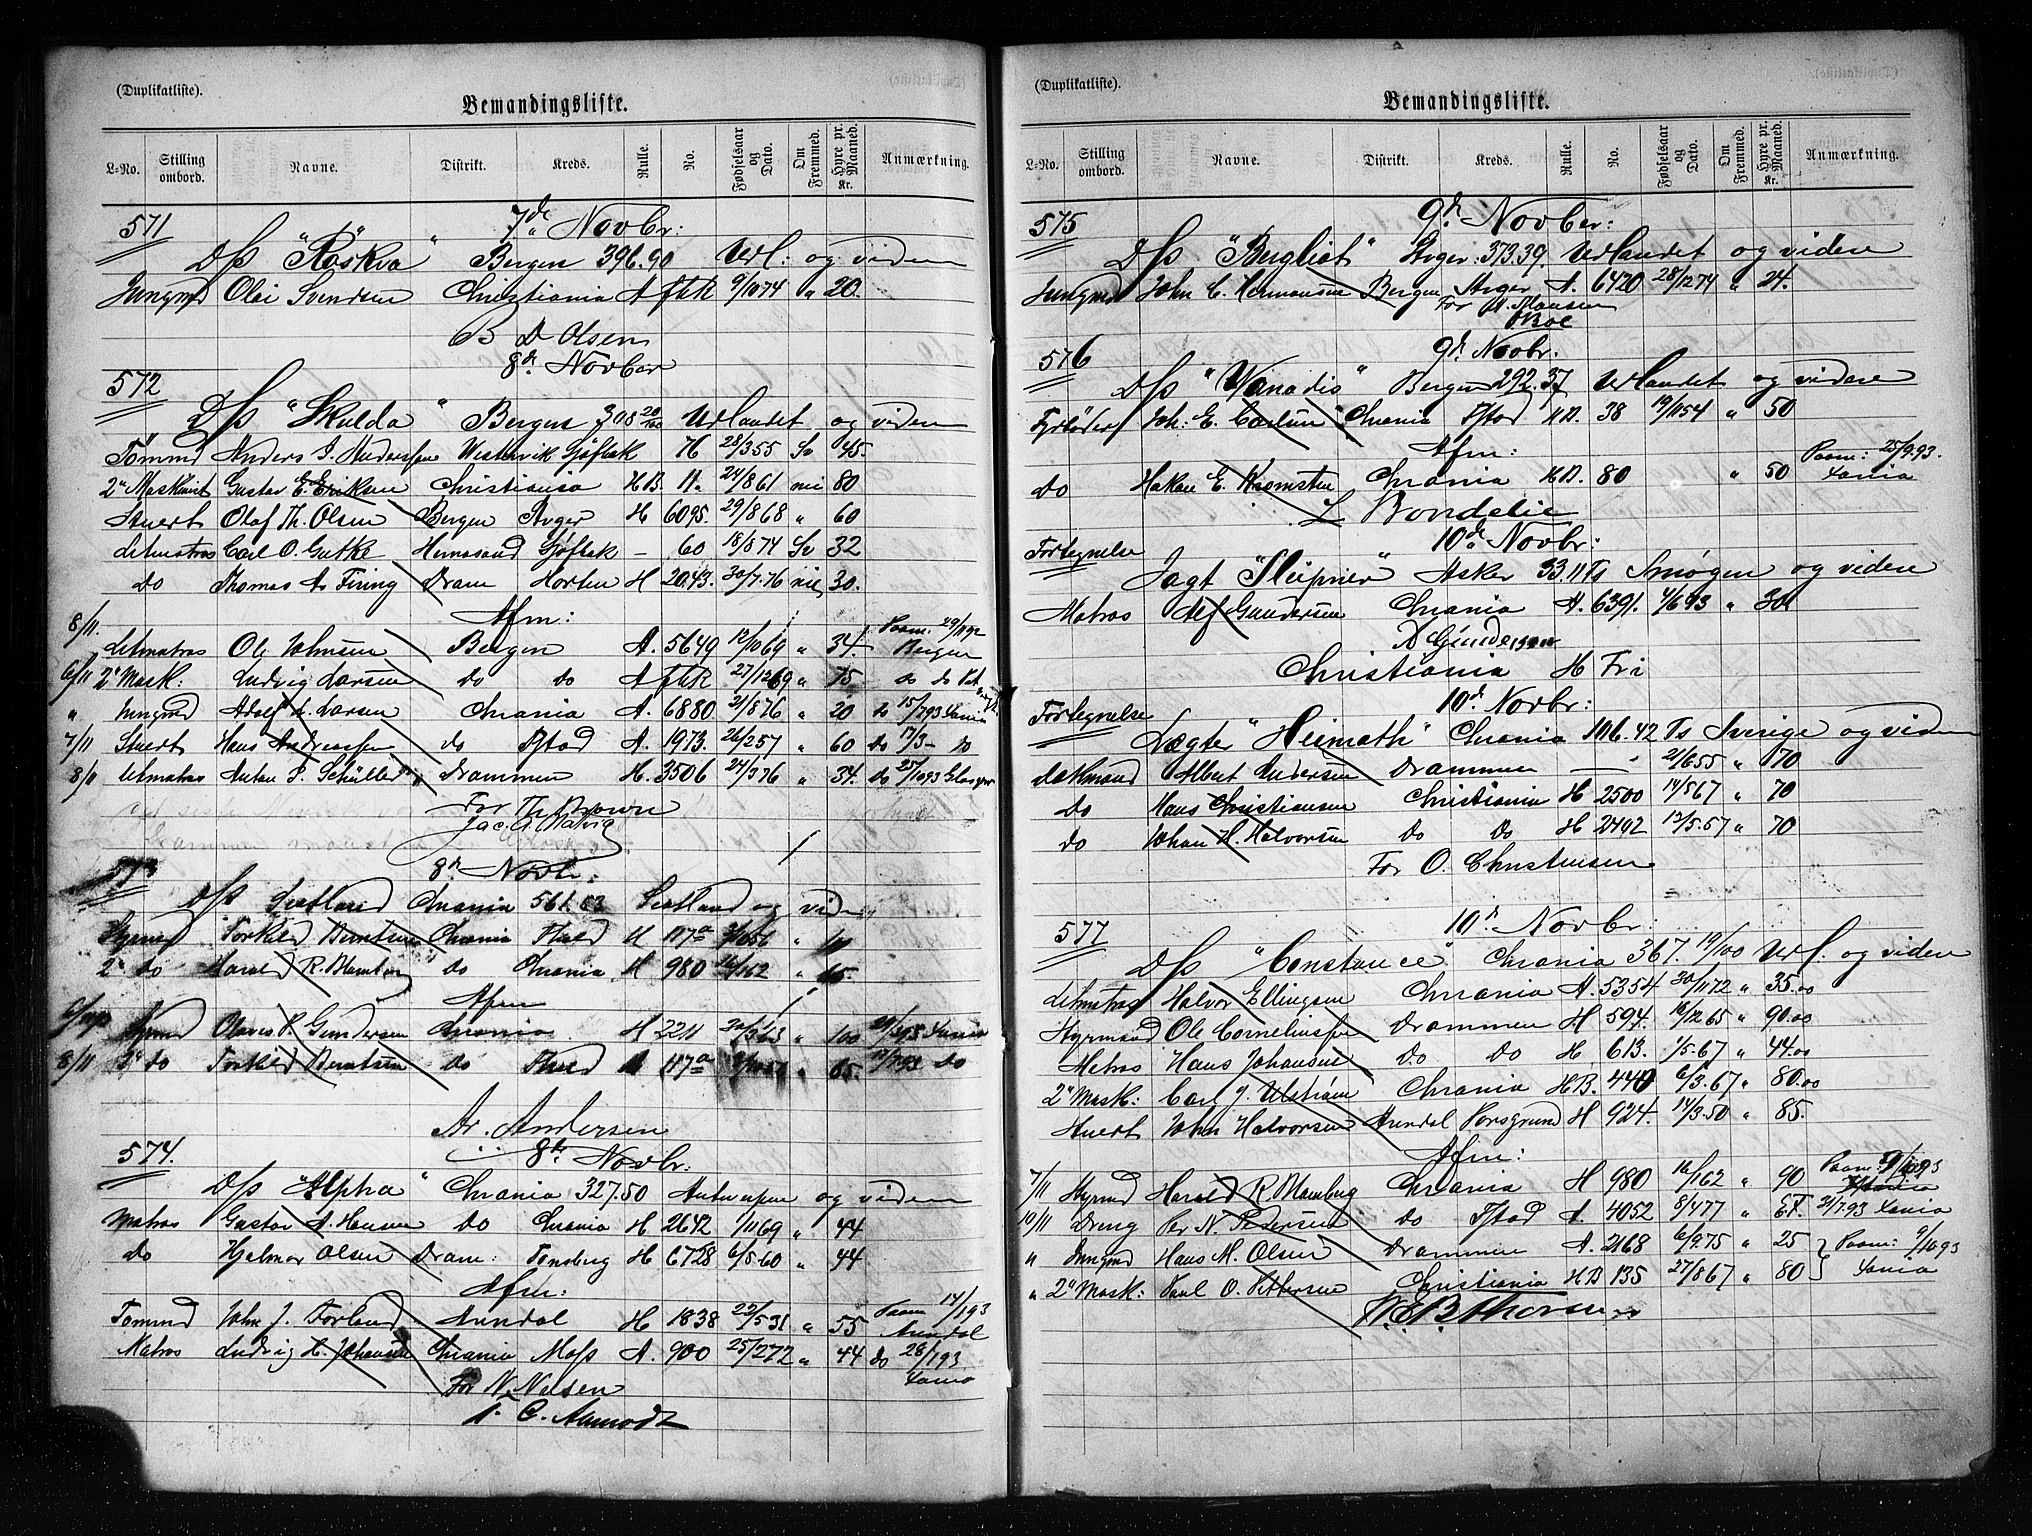 (Duplikatliste).
Bemandingsliste.
L=No. Stilling ombord. Navne. Distrikt. Kreds. Rulle. No. Fødselsaar og Dato. Om Fremmed. Hyre pr. Maaned. Kr. Anmærkning.
571 7de Novbr:
D/s "Röskva" Bergen 396.90 Udl: og videre
Jungmd Olai Svendsen Christiania A ftk 9/10 74 " 20.
B D Olsen
8de Novber
572
D/s "Skulda" Bergen 308 20/100 Udlandet og videre
Tømmd Anders J. Andersson Westervik Gøfbek 76 28/3 55 Sv 95.
2n Maskinist Gustav E. Eriksen Christiania HB. 11. 24/8 61 nei 80
Stuert Olaf Th. Olsen Bergen Avger H 6095. 29/8 68 " 60
Letmatros Carl O. Gutke Hernøsand Gjøfbek - 60 18/8 74 Sv 32
do Thomas A. Firing Dram Horten H 2043. 30/7.76 nei 30.
Afm:
8/11. Letmatros Ole Johnsen Bergen A. 5649 12/10 69 " 34. Paam. 29/11 92 Bergen
6/11 2n Mask: Ludvig Larsen do do A ftk 27/12 69 " 75 do do
" Jungmd Adolf L. Larsen Chrania A. 6880 21/8 76 " 20 do 15/7 93 Xania
7/11 Stuert Hans Andreassen do Fstad A. 1973. 26/2 57 " 60 do 17/3 - do
8/11 Letmatros Anton S. Schüller Drammen H. 3506 24/3 76 " 34. do 25/10 93 Glasgow
For Th Brown
Jac. A. Natvig
573 8de Novbr:
D/s Scotland Chrania 561.03 Scotland og vid
Hyrmd Torkild Berntsen Chrania Fstad H 117a
2n do Harald R. Blomberg do Chrania H 980 16/1 62 " 65.
Afm
Hyrmd Olaves P. Gundersen Chrania H 2211 " 100 Xania
8/11 2n do Torkild Berntsen do Fstad 117a " 65. do
Ar. Andersen
574. 8de Novbr:
D/s "Alpha" Chrania 327.50 Antwerpen og viden
Matros Gustav A. Hansen do Chrania H 2642 1/11 69 " 44
do Hjalmar Olsen Dram: Tønsberg H 6728 6/8.60 " 44
Afm:
Tømmd John J. Forland Arendal H 1838 22/5 31 " 55 Paam 14/1 93 Arendal
Matros Ludvig H. Johansen Chrania Moss A. 900 25/2 72 " 44 do 28/1 93. Xania
For N. Nilsen
T. C. Aamodt
(Duplikatliste).
Bemandingsliste.
L=No. Stilling ombord. Navne. Distrikt. Kreds. Rulle. No. Fødselsaar og Dato. Om Fremmed. Hyre pr. Maaned. Kr. Anmærkning.
575 9de Novber:
D/s "Bergliot" Avger. 373.39. Udlandet og videre
Jungmd John C. Hermansen Bergen Avger A. 6420 28/12 74 " 24.
For A. Monsen
576 9de Novbr.
D/s "Wanadis" Bergen 292.37 Udlandet og videre
Fyrbøder Joh: E. Carlsen Chrania Fstad HB. 38 19/11 54 " 50
Afm:
do Hakon E. Kromsten Chrania HB. 80 " 50 Paam: 25/9.93. Xania
L Bondelie
10de Novbr:
Fortegnelse
Jagt "Sleipner" Asker 33.11 Ts Smøgen og videre
Matros Alf Gundersen Chrania A. 6391. 4/6 73 " 30
A Gundersen
Christiania H Fri
10de Novbr:
Fortegnelse
Lægter "Heimath" Chrania 106.42 Ts Sverige og viden
Dæksmand Albert Andersen Drammen 2/6 55 " 70
do Hans Christiansen Christiania H 2500 14/8 67 " 70
do Johan H. Halvorsen do do H 2492 13/5.67 " 70
For O. Christensen
577 10de Novbr:
D/s "Constance". Chrania 367. 19/100 Udl. og viden
Letmatros Halvor Ellingsen Chrania A. 5354 30/11 72 " 35.00
Hyrmand Ole Corneliussen Drammen H 594. 16/12 65 " 90.00
Matros Hans Johansen do do H 613. 1/5.67 " 44.00
2n Mask: Carl J. Ulstrøm Chrania HB. 440 6/3.67 " 80.00
Stuert John Halvorsen Arendal Porsgrund H 924. 14/3.50 " 85.
Afm:
7/11 Hyrmd Harald R. Blomberg Chrania H 980 16/1 62 " 90 Paam:
10/11 Dreng Per N. Pedersen do Fstad A. 4052 8/4 77 " EF. 21/7.93 Xania
" Jungmd Hans M. Olsen Drammen A. 2168 6/9.75 " 25 } Paam: 9/10 93
" 2n Mask: Paul O. Pettersen Christiania HB 135 27/8 67 " 80 } Xania
W.E.B. Thorsen